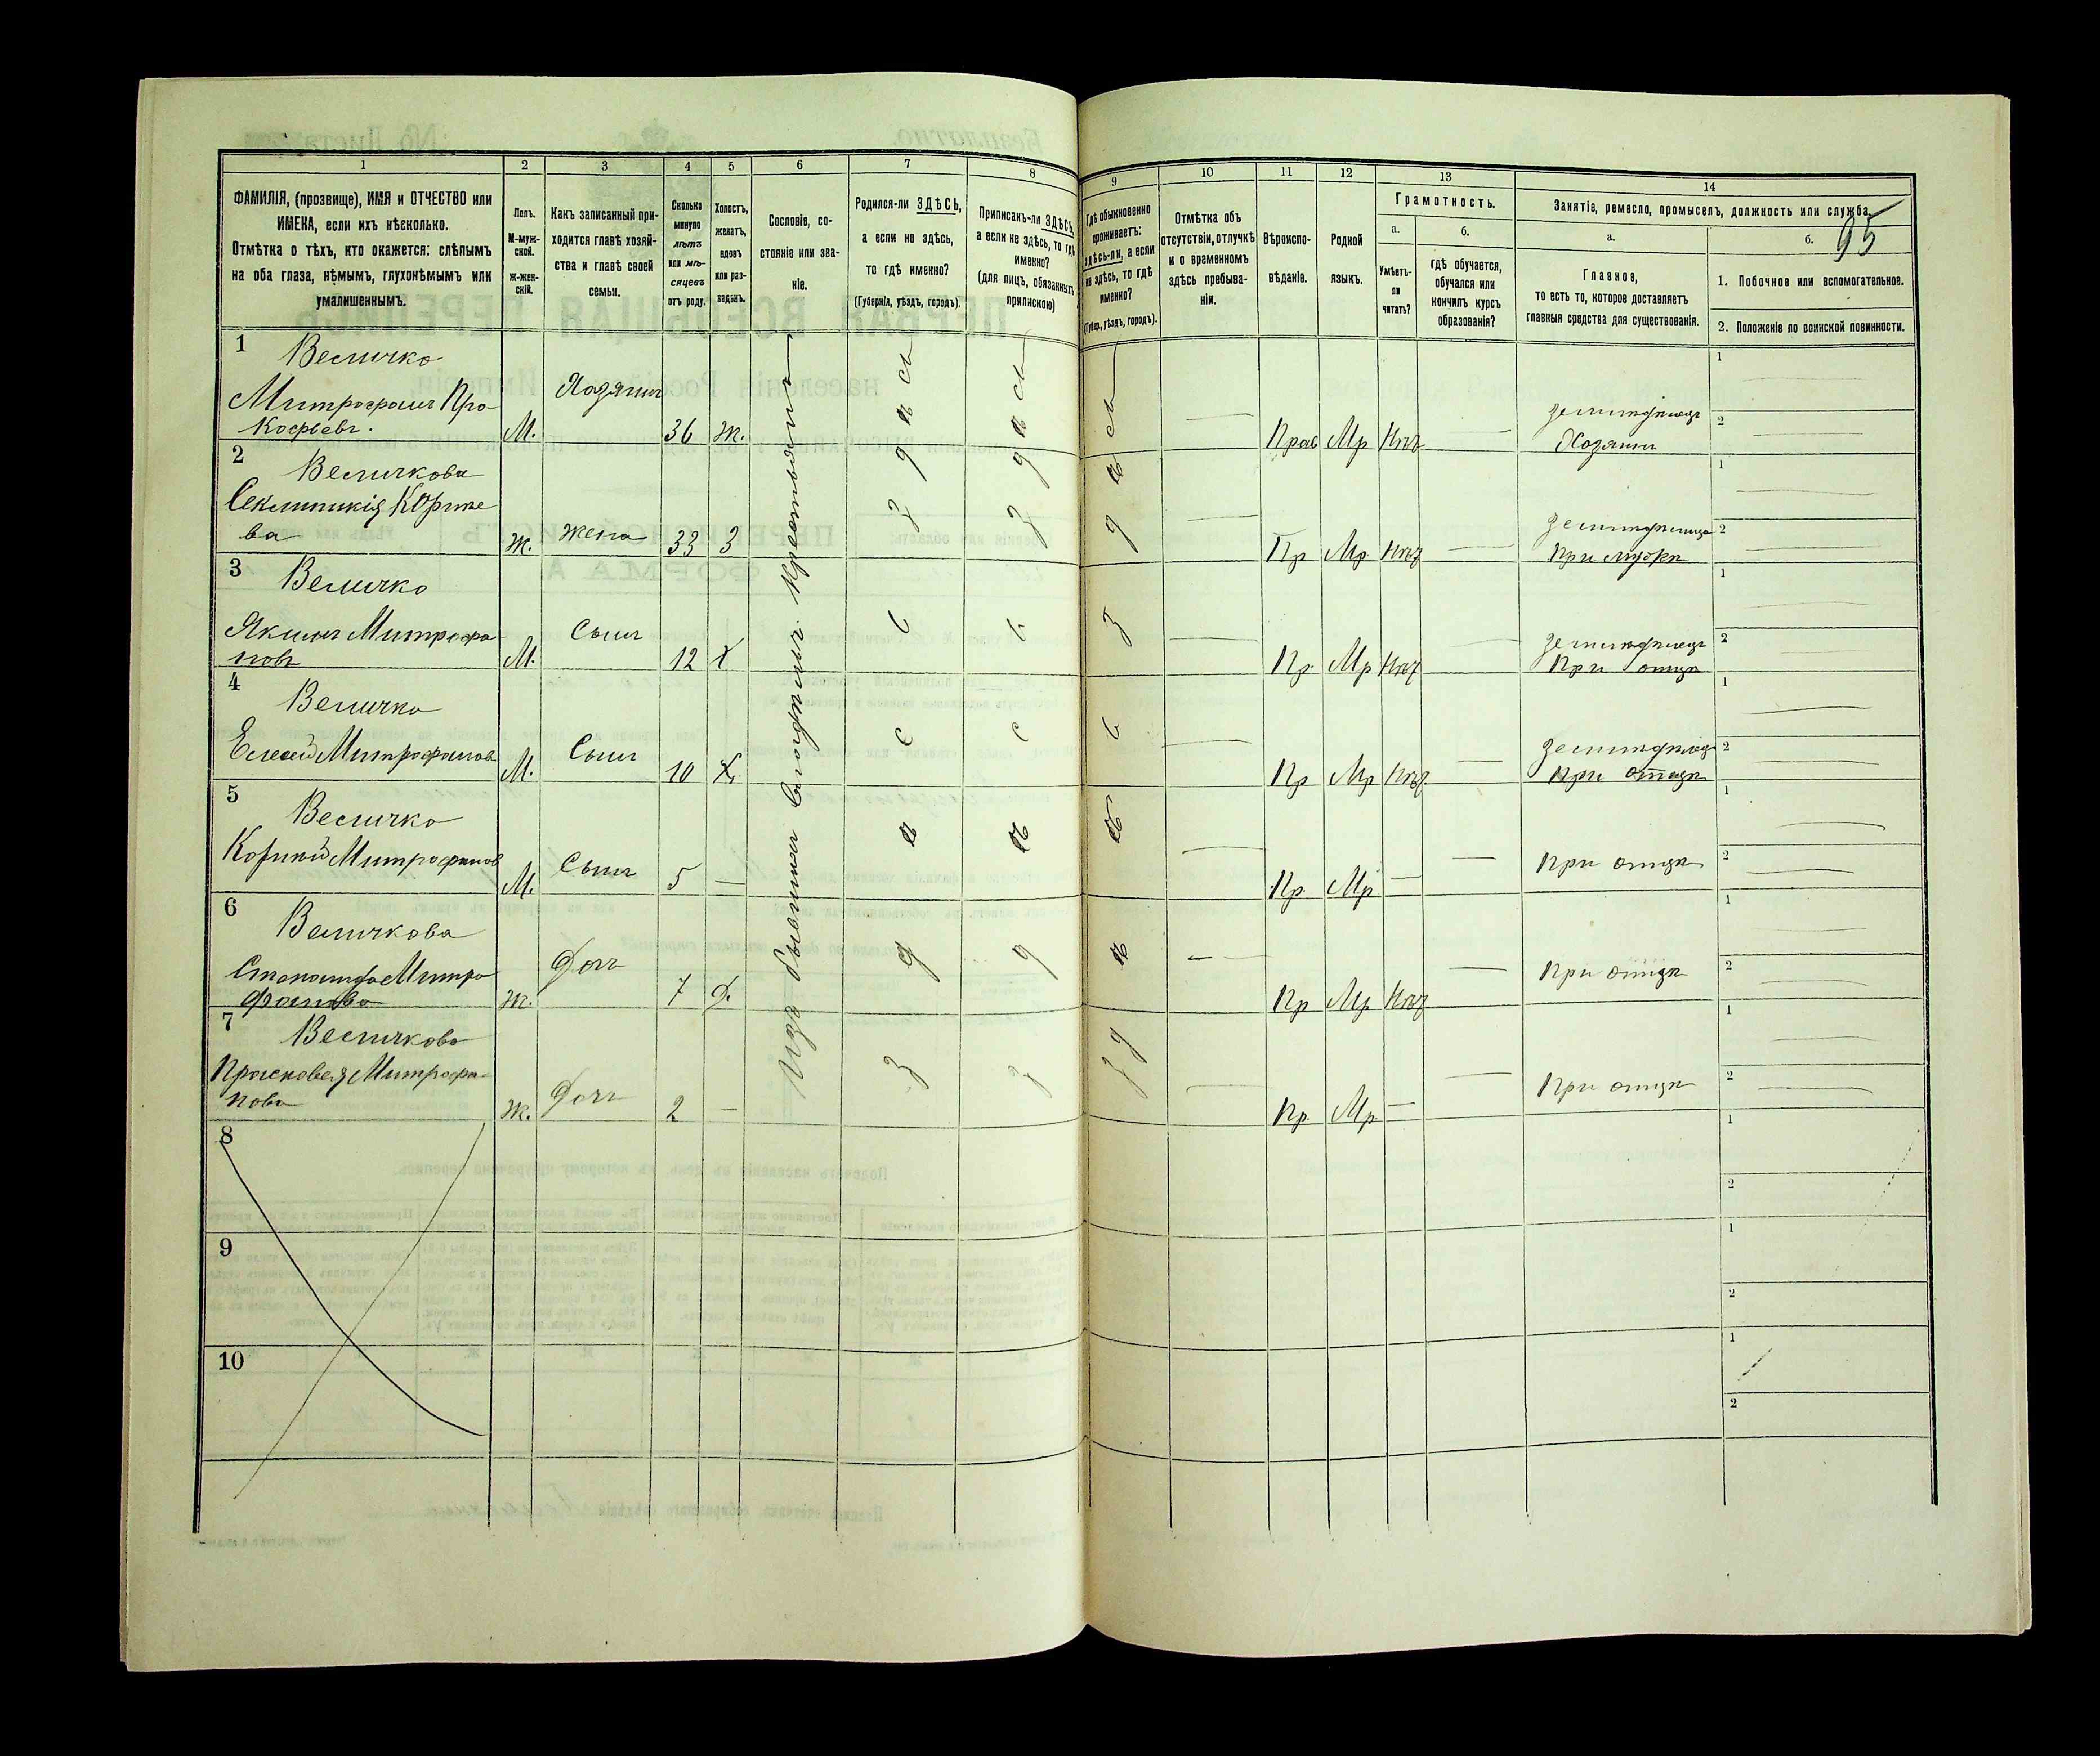 1 2 3 4 5 6 7 8 9 10 11 12 13 14
ФАМИЛІЯ, (прозвище), ИМЯ и ОТЧЕСТВО или
ИМЕНА, если ихъ нѣсколько.
Отмѣтка о тѣхъ, кто окажется: слѣпымъ
на оба глаза, нѣмымъ, глухонѣмымъ или
умалишеннымъ.
Полъ.
М-муж-
ской.
ж-жен-
скій.
Какъ записанный при-
ходится главѣ хозяй-
ства и главѣ своей
семьи.
Сколько
минуло
лѣтъ
или мѣ-
сяцевъ
отъ роду.
Холостъ,
женатъ,
вдовъ
или раз-
веденъ.
Сословіе, со-
стояніе или зва-
ніе.
Родился-ли ЗДѢСЬ,
а если не здѣсь,
то гдѣ именно?
(Губернія, уѣздъ, городъ).
Приписанъ-ли ЗДѢСЬ,
а если не здѣсь, то гдѣ
именно?
(для лицъ, обязанныхъ
припискою)
Гдѣ обыкновенно
проживаетъ:
здѣсь-ли, а если
не здѣсь, то гдѣ
именно?
(Губер., уѣздъ, городъ).
Отмѣтка объ
отсутствіи, отлучкѣ
и о временномъ
здѣсь пребыва-
ніи.
Вѣроиспо-
вѣданіе.
Родной
языкъ.
Грамотность.
а.
Умѣетъ-
ли
читать?
б.
гдѣ обучается,
обучался или
кончилъ курсъ
образованія?
Занятіе, ремесло, промыселъ, должность или служба.
95
а.
Главное,
то есть то, которое доставляетъ
главныя средства для существованія.
б.
1. Побочное или вспомогательное.
2. Положеніе по воинской повинности.
1 Величко
Митрофанъ Про-
кофьевъ.
М. Хозяинъ 36 ж.
Прав Мр Нѣтъ
земледѣлецъ
Хозяинъ
1
2
2 Величкова
ва
ж. жена 33 з
Пр Мр Нѣтъ
При мужѣ
1
2
3 Величко
Якимъ Митрофа
новъ
М. Сынъ 12 х
Пр Мр Нѣтъ
земледѣлецъ
При отцѣ
1
2
4 Величко
Елисей Митрофанов
М. Сынъ 10 х
Пр Мр Нѣтъ
земледѣлецъ
При отцѣ
1
2
5 Величко
Корній Митрофанов
М. Сынъ 5 —
Пр Мр —
При отцѣ
1
2
6 Величкова
Степанида Митро
фанова
ж. Дочь 7 д.
Пр Мр Нѣтъ
При отцѣ
1
2
7 Величкова
Прасковея Митрофа
нова
ж. Дочь 2 —
Пр Мр —
При отцѣ
1
2
Изъ бывшихъ крестьянъ
здѣсь
здѣсь
здѣсь
8
1
2
9
1
2
10
1
2